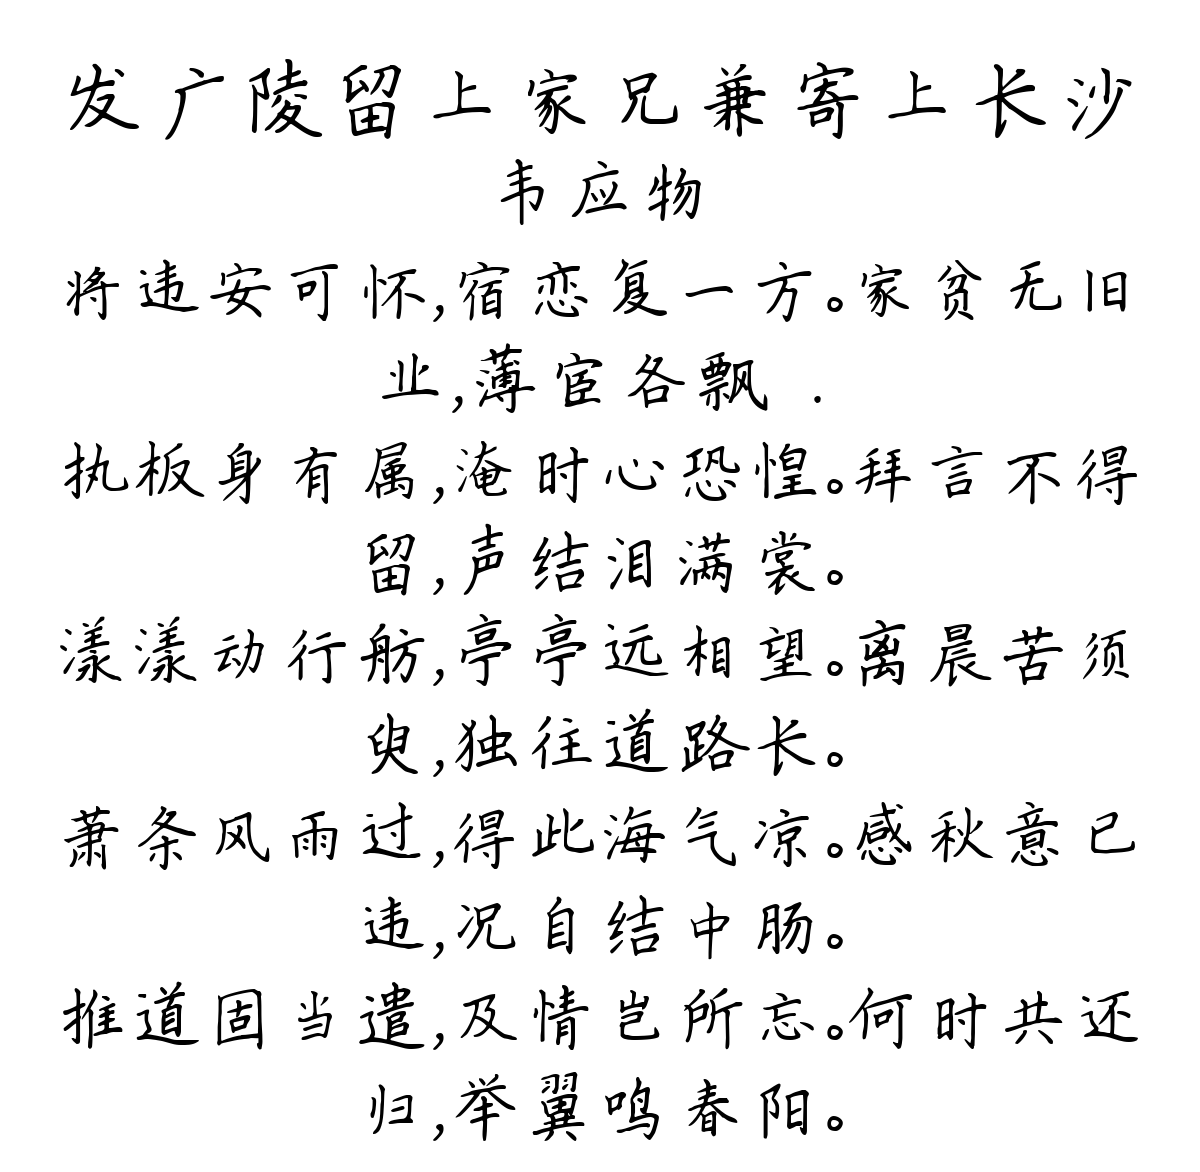 发广陵留上家兄兼寄上长沙
韦应物
将违安可怀,宿恋复一方。家贫无旧
业,薄宦各飘 .
执板身有属,淹时心恐惶。拜言不得
留,声结泪满裳。
漾漾动行舫,亭亭远相望。离晨苦须
臾,独往道路长。
萧条风雨过,得此海气凉。感秋意已
违,况自结中肠。
推道固当遣,及情岂所忘。何时共还
归,举翼鸣春阳。